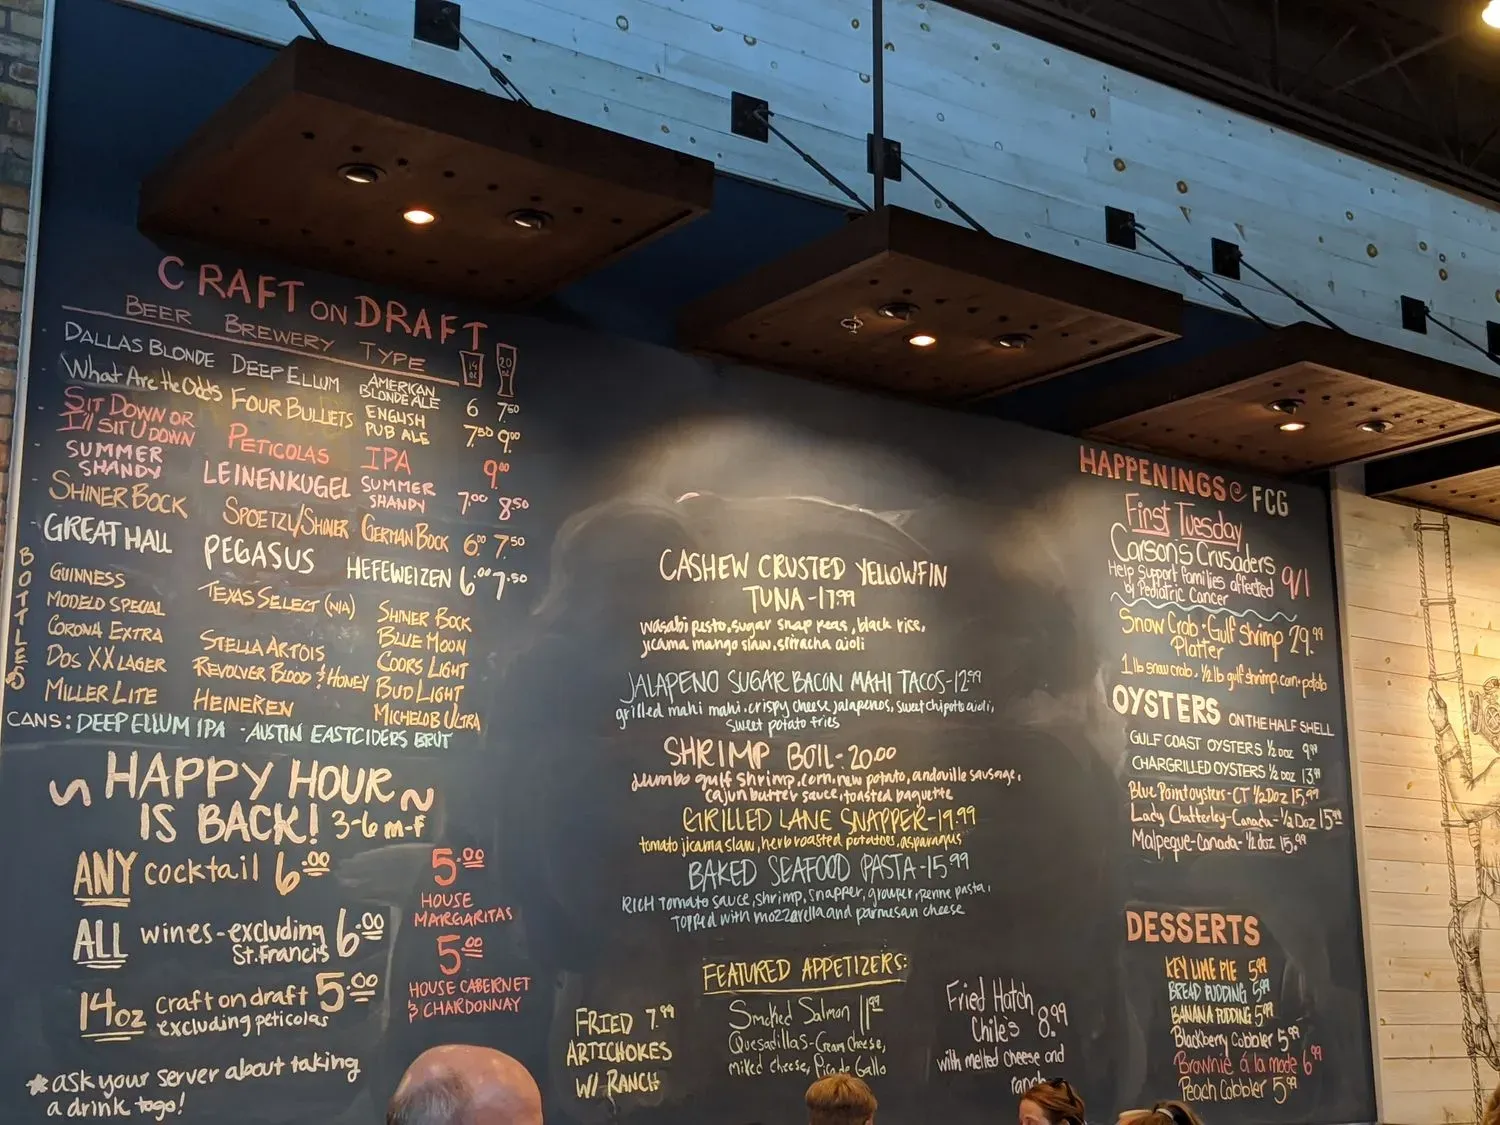 CRAFT ON DRAFT
BEER BREWERY TYPE 14 oz 20 oz
DALLAS BLONDE DEEP ELLUM AMERICAN BLONDE ALE 6 7.50
What Are the Odds FOUR BULLETS ENGLISH PUB ALE 7.50 9.00
SIT DOWN OR I'll SIT U DOWN PETICOLAS IPA 9.00
SUMMER SHANDY LEINENKUGEL SUMMER SHANDY 7.00 8.50
SHINER BOCK SPOETZL/SHINER GERMAN BOCK 6.00 7.50
GREAT HALL PEGASUS HEFEWEIZEN 6.00 7.50
BOTTLES
GUINNESS TEXAS SELECT (N/A) SHINER BOCK
MODELO SPECIAL BLUE MOON
CORONA EXTRA STELLA ARTOIS COORS LIGHT
DOS XX LAGER REVOLVER BLOOD & HONEY BUD LIGHT
MILLER LITE HEINEKEN MICHELOB ULTRA
CANS: DEEP ELLUM IPA - AUSTIN EASTCIDERS BRUT
HAPPY HOUR
IS BACK! 3-6 m-f
ANY cocktail 6.00
ALL wines - excluding St. Francis 6.00
14oz craft on draft 5.00
excluding peticolas
*ask your server about taking
a drink togo!
5.00
HOUSE
MARGARITAS
5.00
HOUSE CABERNET
& CHARDONNAY
CASHEW CRUSTED YELLOWFIN
TUNA - 17.99
wasabi pesto, sugar snap peas, black rice,
jicama mango slaw, sriracha aioli
JALAPENO SUGAR BACON MAHI TACOS - 12.99
grilled mahi mahi, crispy cheese jalapenos, sweet chipotle aioli,
sweet potato fries
SHRIMP BOIL - 20.00
Jumbo gulf shrimp, corn, new potato, andoville sausage,
cajun butter sauce, toasted baguette
GRILLED LANE SNAPPER - 19.99
tomato jicama slaw, herb roasted potatoes, asparagus
BAKED SEAFOOD PASTA - 15.99
RICH tomato sauce, shrimp, snapper, grouper, penne pasta,
TOPPED with mozzarella and parmesan cheese
FEATURED APPETIZERS:
FRIED 7.99
ARTICHOKES
W/ RANCH
Smoked Salmon 11.99
Quesadillas - Cream Cheese,
mixed cheese, Pico de Gallo
Fried Hatch
Chile's 8.99
with melted cheese and
ranch
HAPPENINGS @ FCG
First Tuesday
Carson's Crusaders
Help Support families affected
by Pediatric Cancer 9/1
Snow Crab · Gulf Shrimp 29.99
Platter
1 lb snow crab, 1/2 lb gulf shrimp, corn + potato
OYSTERS ON THE HALF SHELL
GULF COAST OYSTERS 1/2 DOZ 9.99
CHARGRILLED OYSTERS 1/2 DOZ 13.99
Blue Point oysters - CT 1/2 Doz 15.99
Lady Chatterley - Canada - 1/2 Doz 15.99
Malpeque - Canada - 1/2 doz 15.99
DESSERTS
KEY LIME PIE 5.99
BREAD PUDDING 5.99
BANANA PUDDING 5.99
Blackberry Cobbler 5.99
Brownie á la mode 6.99
Peach Cobbler 5.99